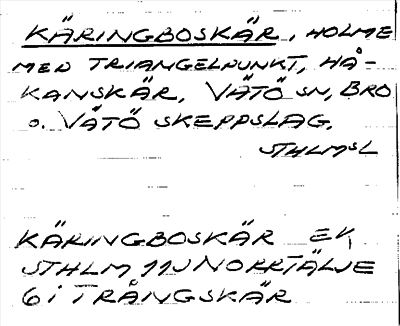 KÄRINGBOSKÄR, HOLME
MED TRIANGELPUNKT, HÅ-
KANSKÄR, VÄTÖ SN, BRO
O. VÄTÖ SKEPPSLAG,
STHLMSL
KÄRINGBOSKÄR EK
STHLM 11J NORRTÄLJE
6 i TRÅNGSKÄR